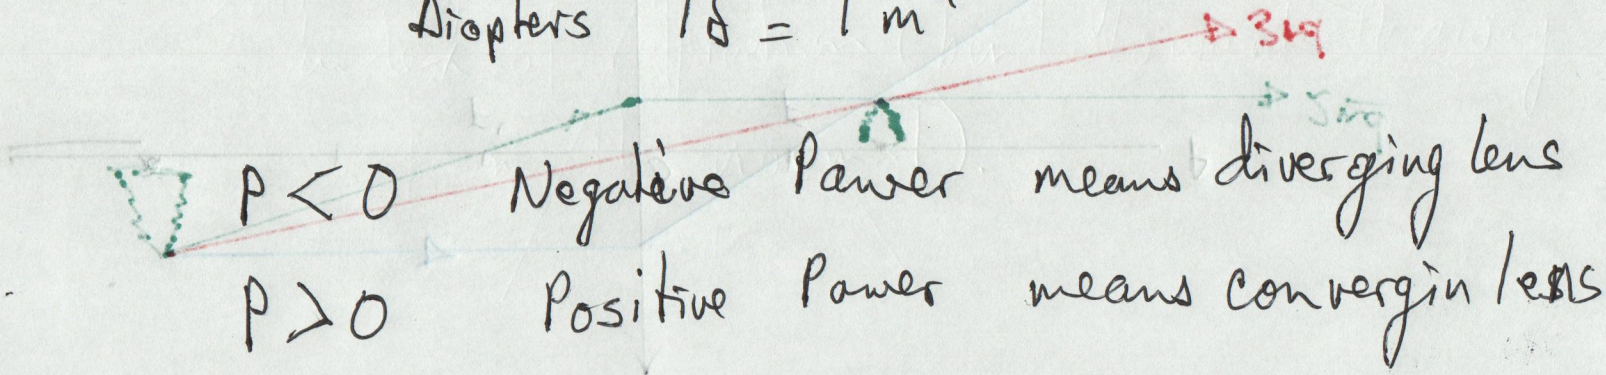 Diopters 1δ = 1 m
3rq
P < 0 Negative Power means diverging lens
P > 0 Positive Power means convergin lens